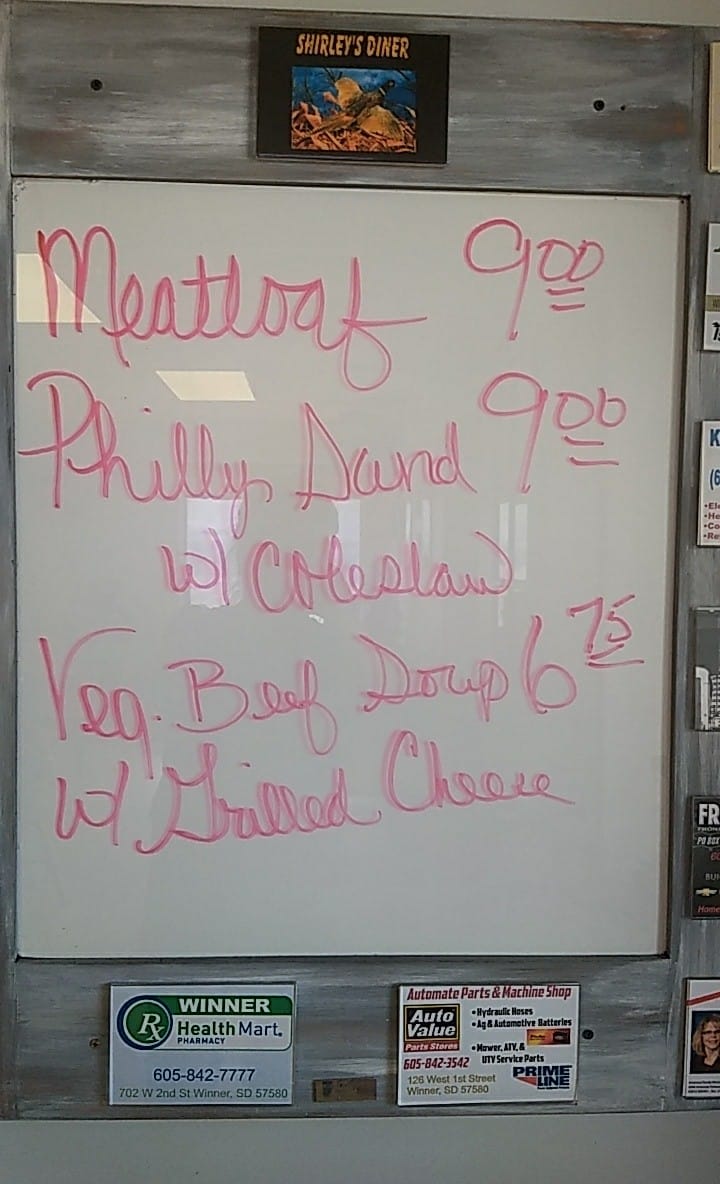 SHIRLEY'S DINER
Meatloaf 9.00
Philly Sand 9.00
w/ Coleslaw
Veg. Beef Soup 6.75
w/ Grilled Cheese
WINNER
Rx Health Mart.
PHARMACY
605-842-7777
702 W 2nd St Winner, SD 57580
Automate Parts & Machine Shop
Auto Value
Parts Stores
• Hydraulic Hoses
• Ag & Automotive Batteries
• Mower, ATV, &
UTV Service Parts
605-842-3542
126 West 1st Street
Winner, SD 57580
PRIME LINE
K
(6
•Ele
•He
•Co
•Re
FR
PO BOX
BUI
Home